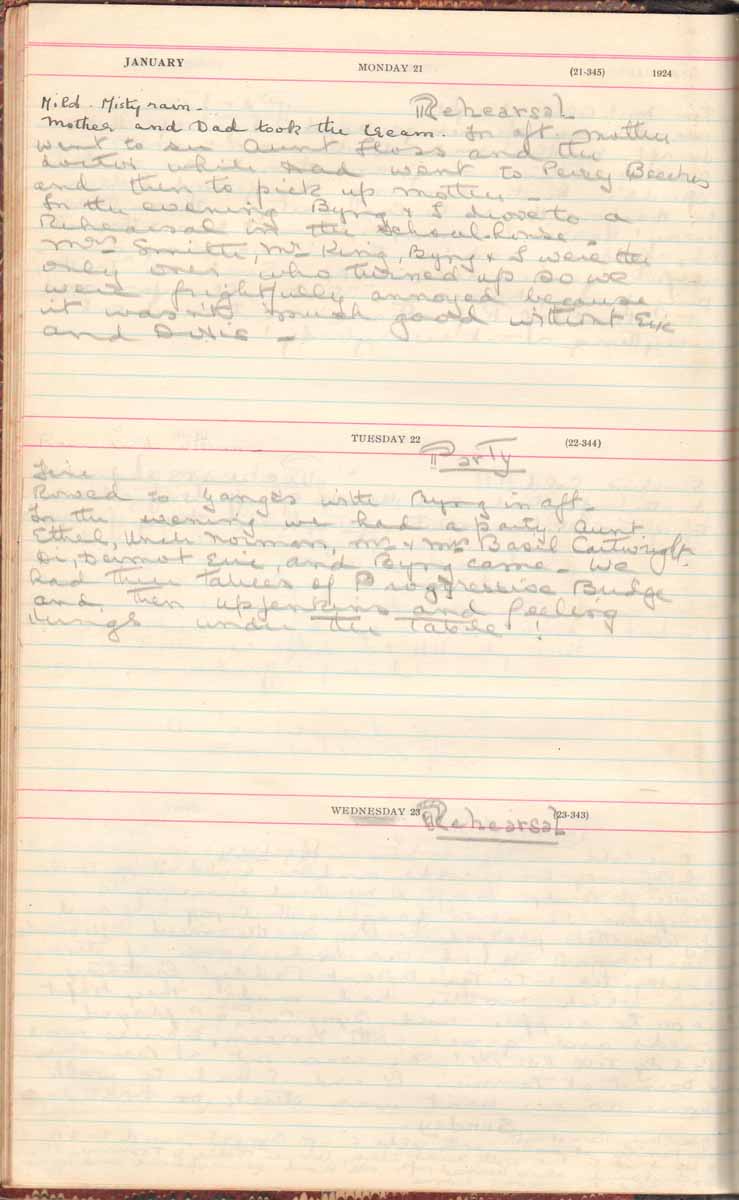 JANUARY MONDAY 21 (21-345) 1924
Rehearsal
Mild. Misty rain.
Mother and Dad took the cream. In aft. Mother
went to see Aunt Floss and the
doctor while Dad went to Percy Beeches
and then to pick up mother —
In the evening Byng & I drove to a
Rehearsal in the school-house —
Mrs Smith, Mr King, Byng & I were the
only ones who turned up so we
were frightfully annoyed because
it wasn't much good without Eric
and Dulcie —
TUESDAY 22 (22-344)
Party
Fine
Rowed to Yanges with Byng in aft —
In the evening we had a party. Aunt
Ethel, Uncle Norman, Mr & Mrs Basil Cartwright.
Di, Dermot Eric, and Byng came — We
had three tables of Progressive Bridge
and then upjenkins and feeling
things under the table !
WEDNESDAY 23 (23-343)
Rehearsal